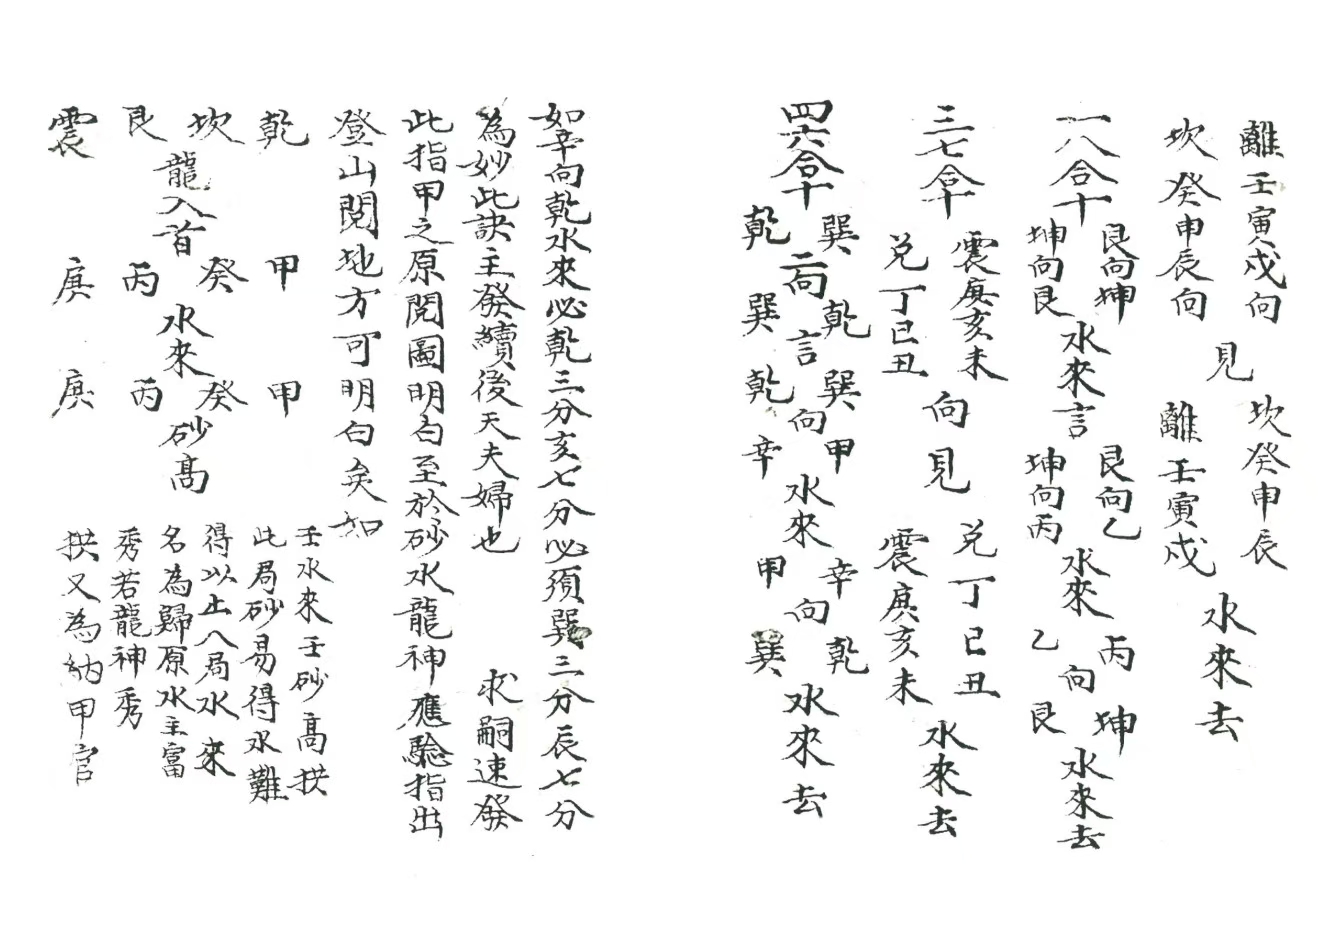 離壬寅戍向
坎癸申辰向
見
坎癸申辰
離壬寅戍
水來去
一八合十
艮向坤
坤向艮
水來言
艮向乙
坤向丙
水來
丙坤
乙艮
向
水來去
三七合十
震庚亥未
兌丁巳丑
向見
兌丁巳丑
震庚亥未
水來去
四六合十
巽乾巽甲
二向言向水來
乾巽乾辛
辛乾
向
甲巽
水來去
如辛向乾水來必乾三分亥七分必須巽三分辰七分
為妙此訣主發續後天夫婦也 求嗣速發
此指甲之原閱圖明白至於砂水龍神應驗指出
登山閱地方可明白矣如
乾 甲 甲
坎 癸 癸
龍入首 水來 砂高
艮 丙 丙
震 庚 庚
壬水來壬砂高拱
此局砂易得水難
得以上八局水來
名為歸原水主富
秀若龍神秀
拱又為納甲官